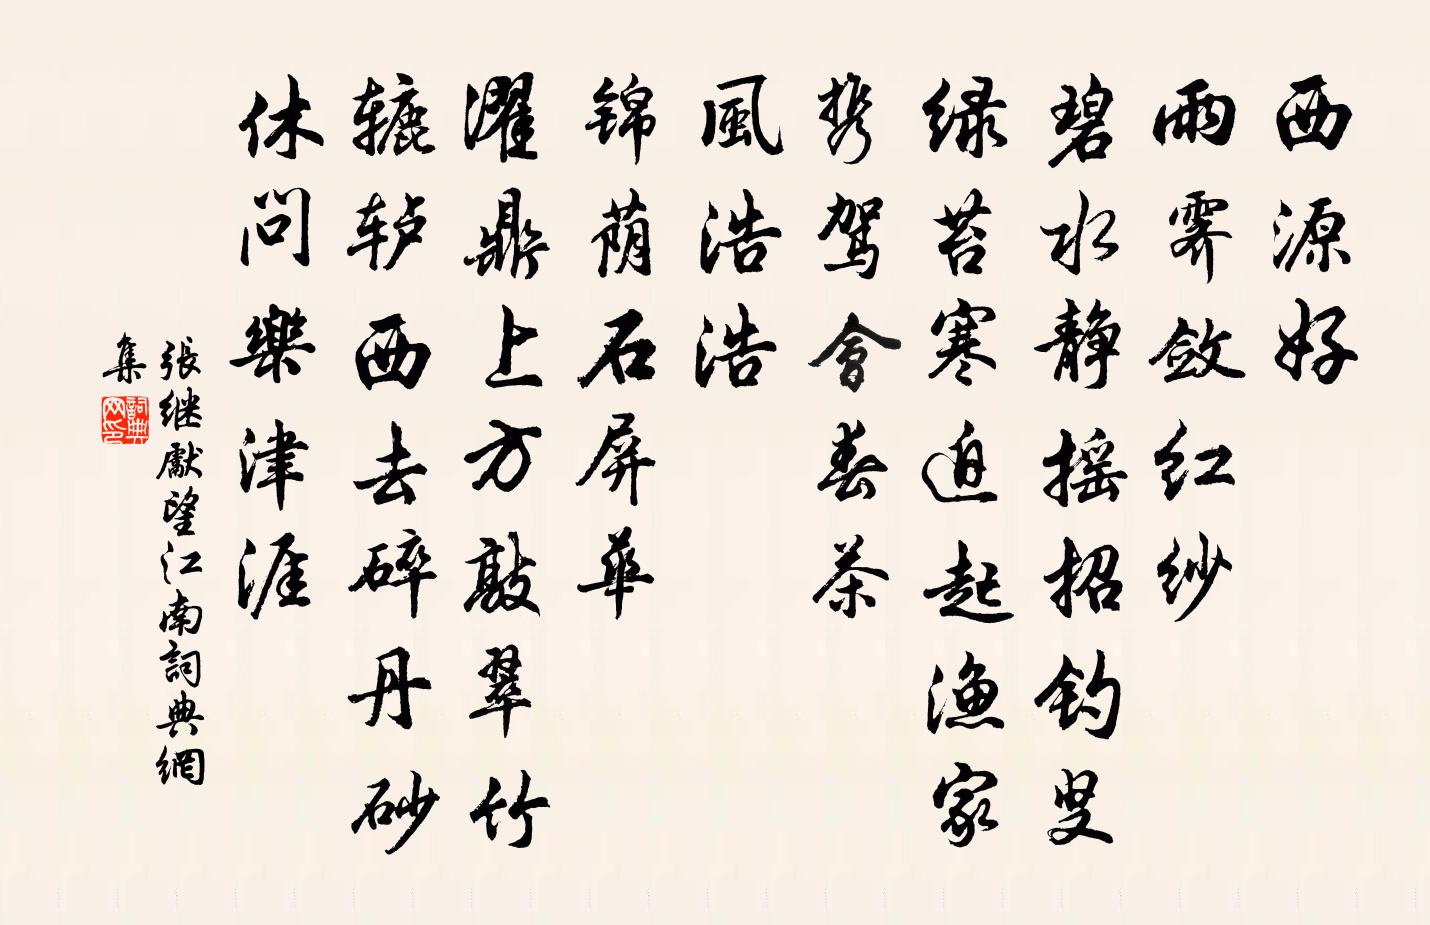 西源好
雨霁敛红纱
碧水静摇招钓叟
绿苔寒迫起渔家
携驾会春茶
風浩浩
锦荫石屏華
濯鼎上方敲翠竹
辘轳西去碎丹砂
休问樂津涯
張继獻望江南詞典網
集
詞典网印